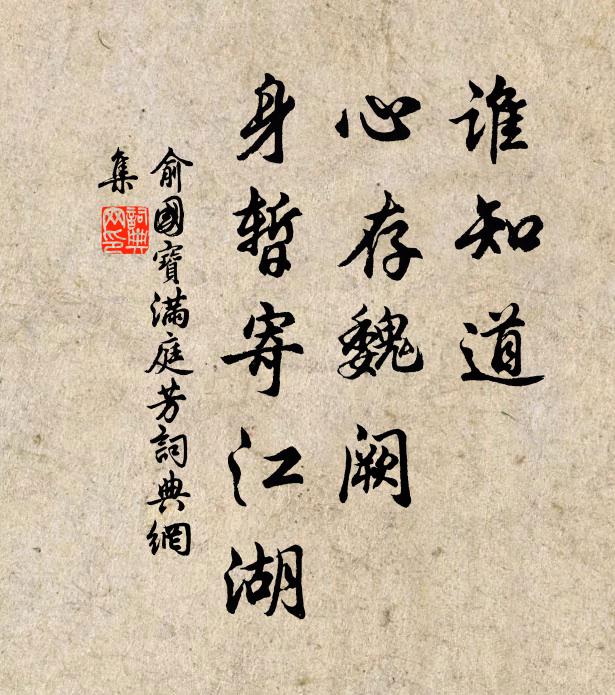 谁知道
心存魏阙
身暂寄江湖
俞國寶滿庭芳詞典網
集
詞典网印